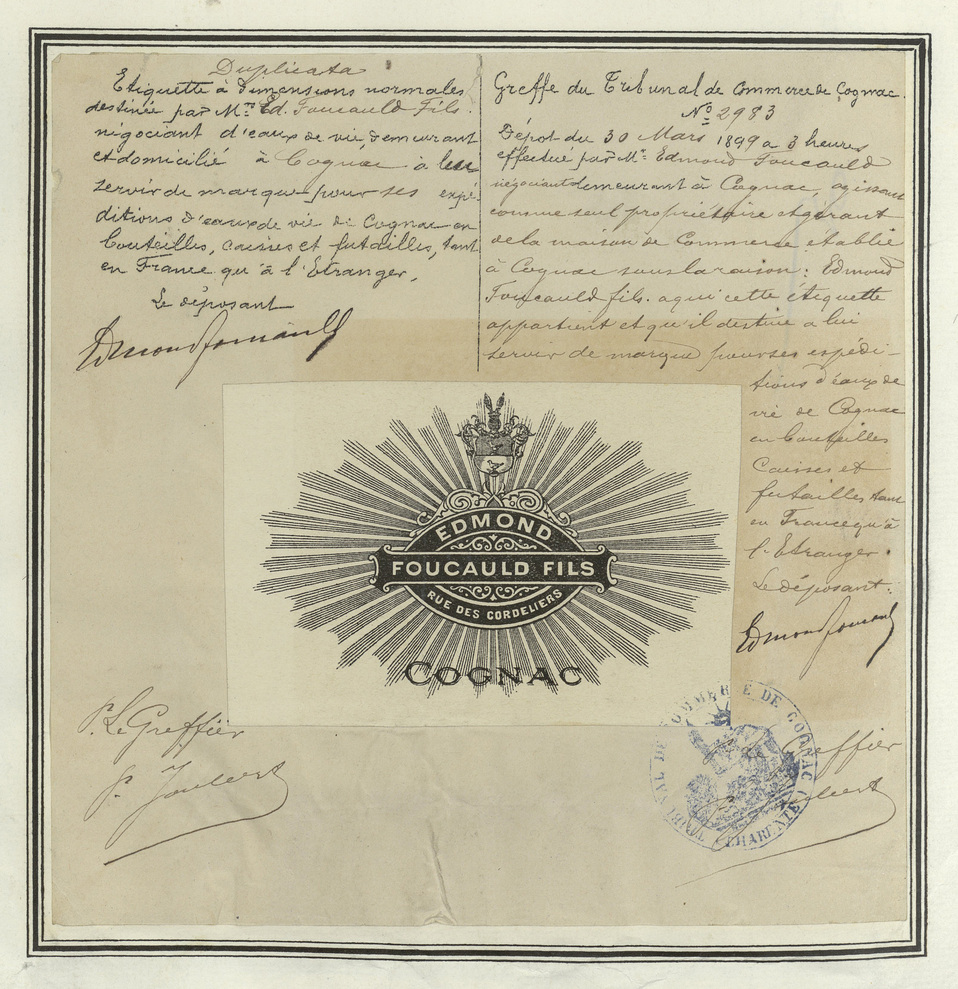 Duplicata
Etiquette à dimensions normales
destinée par Mr. Ed. Foucauld Fils.
négociant d'eaux de vie, demeurant
et domicilié à Cognac à lui
servir de marque pour ses expé-
ditions d'eaux de vie de Cognac en
bouteilles, caisses et futailles, tant
en France qu'à l'Etranger,
Le déposant
Edmond Foucauld
Greffe du Tribunal de Commerce de Cognac.
No 2983
Dépôt du 30 Mars 1899 à 3 heures
effectué par Mr. Edmond Foucauld
négociant demeurant à Cognac, agissant
comme seul propriétaire et gérant
de la maison de Commerce établie
à Cognac sous la raison : Edmond
Foucauld fils. a qui cette étiquette
appartient et qu'il destine a lui
servir de marque pour ses expédi-
tions d'eaux de
vie de Cognac
en bouteilles
Caisses et
futailles tant
en France qu'à
l'Etranger.
Le déposant :
Edmond Foucauld
EDMOND
FOUCAULD FILS
RUE DES CORDELIERS
COGNAC
P. Le Greffier
P. Joubert
TRIBUNAL DE COMMERCE DE COGNAC
CHARENTE
Greffier
Joubert